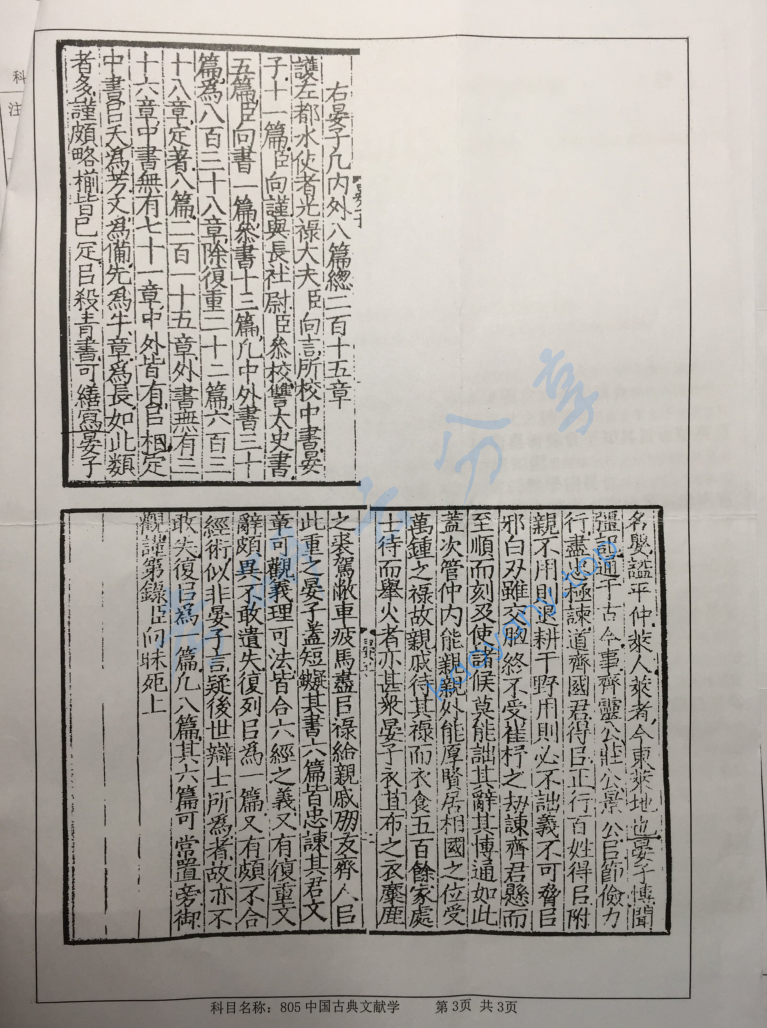 右晏子凡内外八篇緫二百十五章
護左都水使者光禄大夫臣向言所校中書晏
子十一篇臣向謹與長社尉臣參校讎太史書
五篇臣向書一篇參書十三篇凡中外書三十
篇為八百三十八章除復重二十二篇六百三
十八章定著八篇二百一十五章外書無有三
十六章中書無有七十一章中外皆有㠯相定
中書㠯夭為芳又為備先為牛章為長如此類
者多謹頗略椾皆已定㠯殺青書可繕寫晏子
名嬰謚平仲萊人萊者今東萊地也晏子博聞
彊記通于古今事齊靈公莊公景公㠯節儉力
行盡忠極諫道齊國君得㠯正行百姓得㠯附
親不用則退耕于野用則必不詘義不可脅㠯
邪白刃雖交胷終不受崔杼之劫諫齊君懸而
至順而刻及使諸侯莫能詘其辭其博通如此
蓋次管仲内能親親外能厚賢居相國之位受
萬鍾之禄故親戚待其禄而衣食五百餘家處
士待而舉火者亦甚衆晏子衣苴布之衣麋鹿
之裘駕敝車疲馬盡㠯禄給親戚朋友齊人㠯
此重之晏子蓋短其書六篇皆忠諫其君文
章可觀義理可法皆合六經之義又有復重文
辭頗異不敢遺失復列㠯為一篇又有頗不合
經術似非晏子言疑後世辯士所為者故亦不
敢失復㠯為一篇凡八篇其六篇可常置旁御
觀謹第録臣向昧死上
科目名称：805中国古典文献学 第3页 共3页
科
注
kaoyany.top